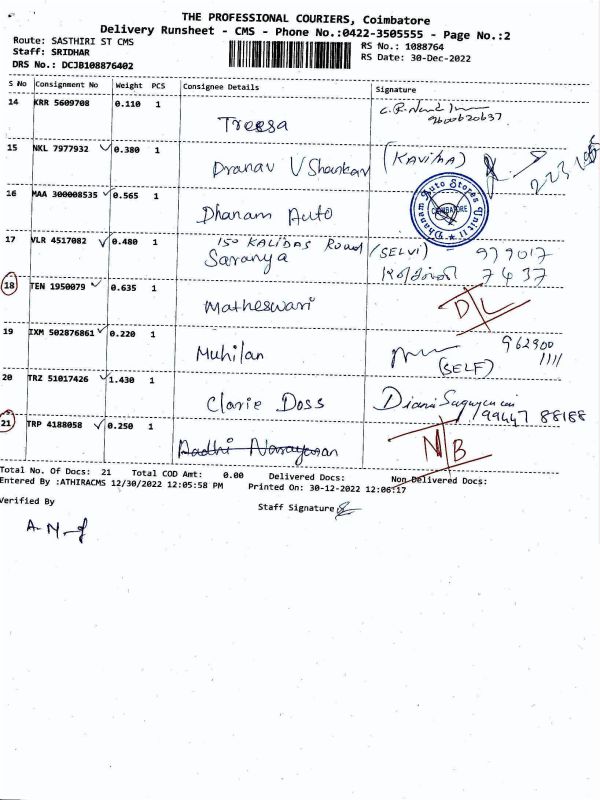 THE PROFESSIONAL COURIERS, Coimbatore
Delivery Runsheet - CMS - Phone No.:0422-3505555 - Page No.:2
Route: SASTHIRI ST CMS
RS No.: 1088764
Staff: SRIDHAR
RS Date: 30-Dec-2022
DRS No.: DCJB108876402
S No Consignment No Weight PCS Consignee Details Signature
14 KRR 5609708 0.110 1 Treesa
9600620637
15 NKL 7977932 0.380 1 Pranav V Shankar (KAVIHA)
16 MAA 300008535 0.565 1 Dhanam Auto
Dhanam Auto Stores Unit II COIMBATORE
17 VLR 4517082 0.480 1 150 KALIDAS Road (SELVI) 979017
Saranya 7437
18 TEN 1950079 0.635 1 Matheswari D/L
19 IXM 502876861 0.220 1 Muhilan 962900
(SELF) 1111
20 TRZ 51017426 1.430 1 Clarie Doss
99447 88188
21 TRP 4188058 0.250 1 Aadhi Narayanan N/B
Total No. Of Docs: 21 Total COD Amt: 0.00 Delivered Docs: Non Delivered Docs:
Entered By :ATHIRACMS 12/30/2022 12:05:58 PM Printed On: 30-12-2022 12:06:17
Verified By Staff Signature